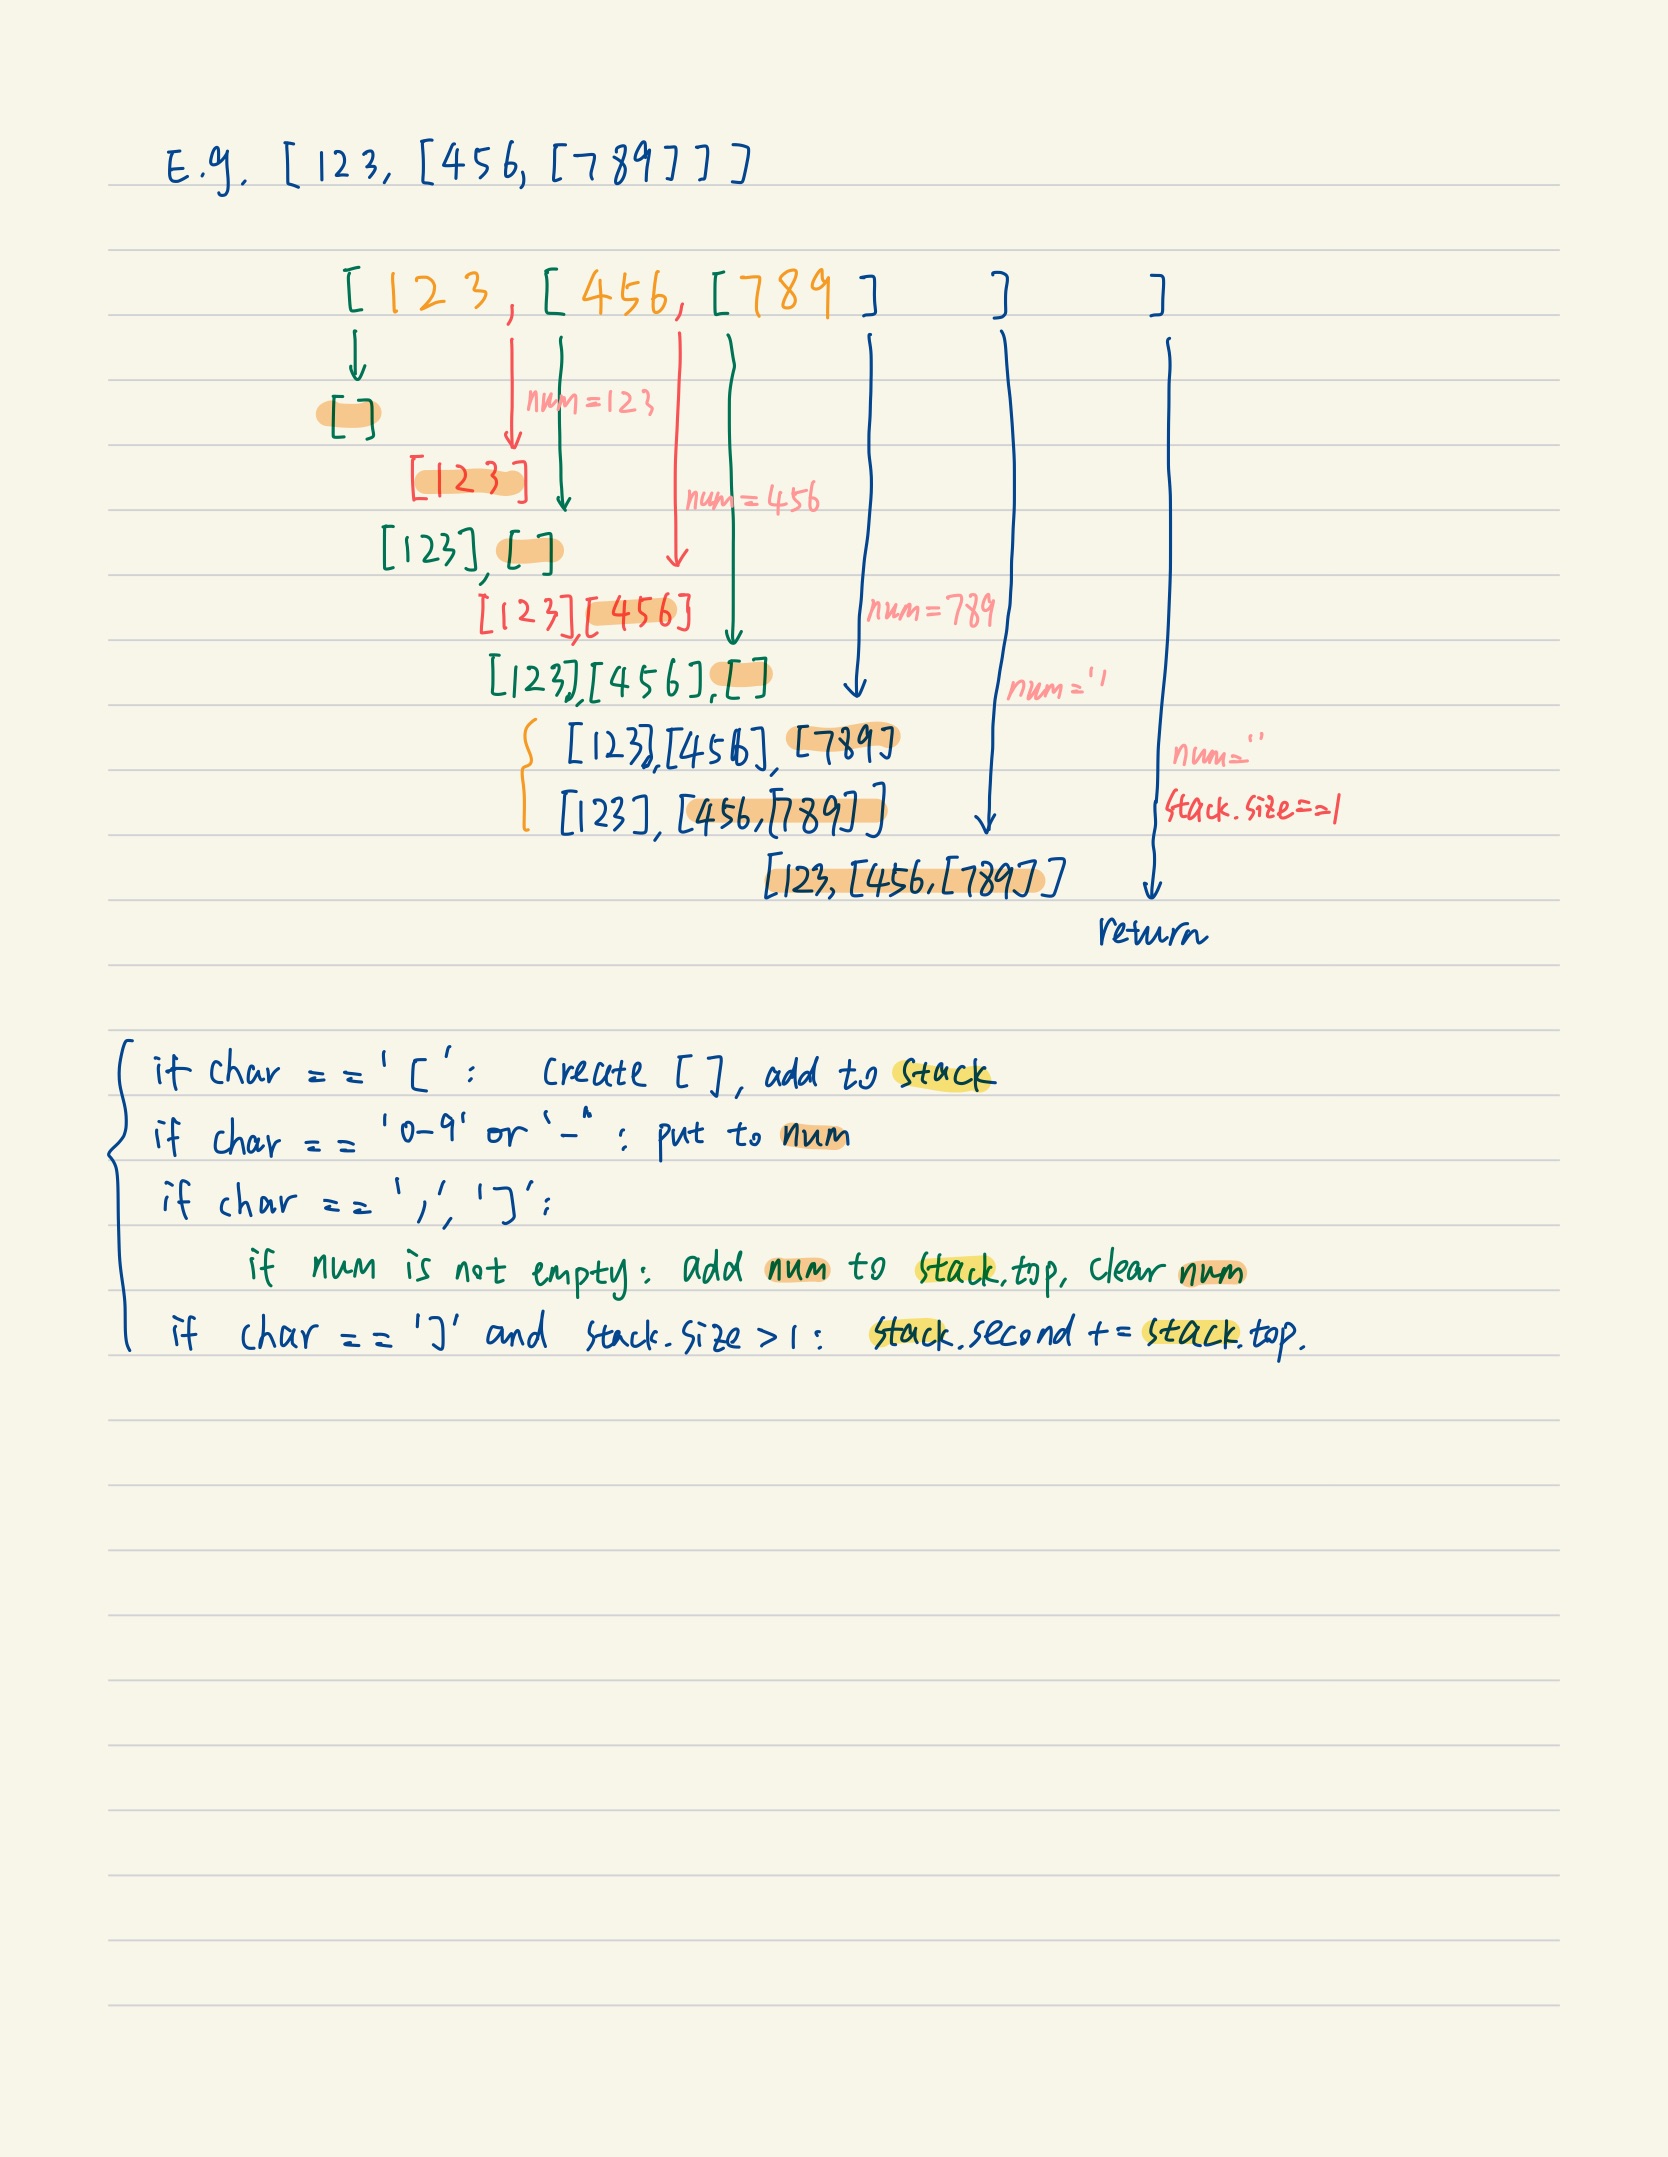 E.g. [123, [456, [789]]]
[ 123, [ 456, [ 789 ] ] ]
[ ]
num=123
[123]
num=456
[123], [ ]
[123],[456]
num=789
[123],[456],[ ]
num=''
[123],[456], [789]
num=''
[123], [456,[789]]
stack.size==1
[123, [456,[789]]
return
if char == '[': create [ ], add to stack
if char == '0-9' or '-": put to num
if char == ',', ']':
if num is not empty: add num to stack.top, clear num
if char == ']' and stack.size > 1: stack.second += stack.top.